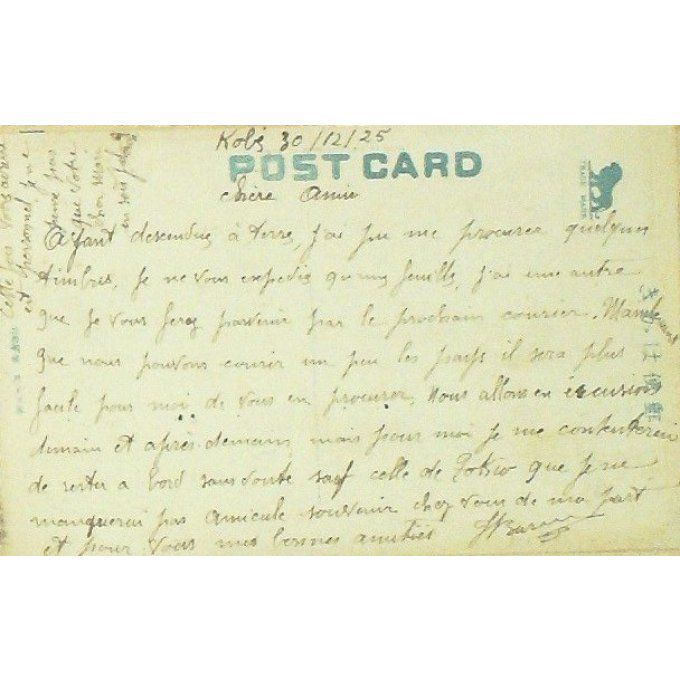 Kobé 30/12/25
POST CARD
TRADE MARK
chère Amie
Ayant descendue à terre, j'ai pu me procurer quelques
timbres, je ne vous expedie qu'une feuille, j'ai une autre
que je vous ferez parvenir par le prochain courier. Maintenant
que nous pouvons courir un peu les pays il sera plus
facile pour moi de vous en procurer, Nous allons en excursion
demain et après demain, mais pour moi je me contenterai
de rester a bord sans doute sauf celle de que je ne
manquerai pas amicale souvenir chez vous de ma part
et pour vous mes bonnes amitiés
Cette fois
est personnel
que votre
cher Mari
en soit